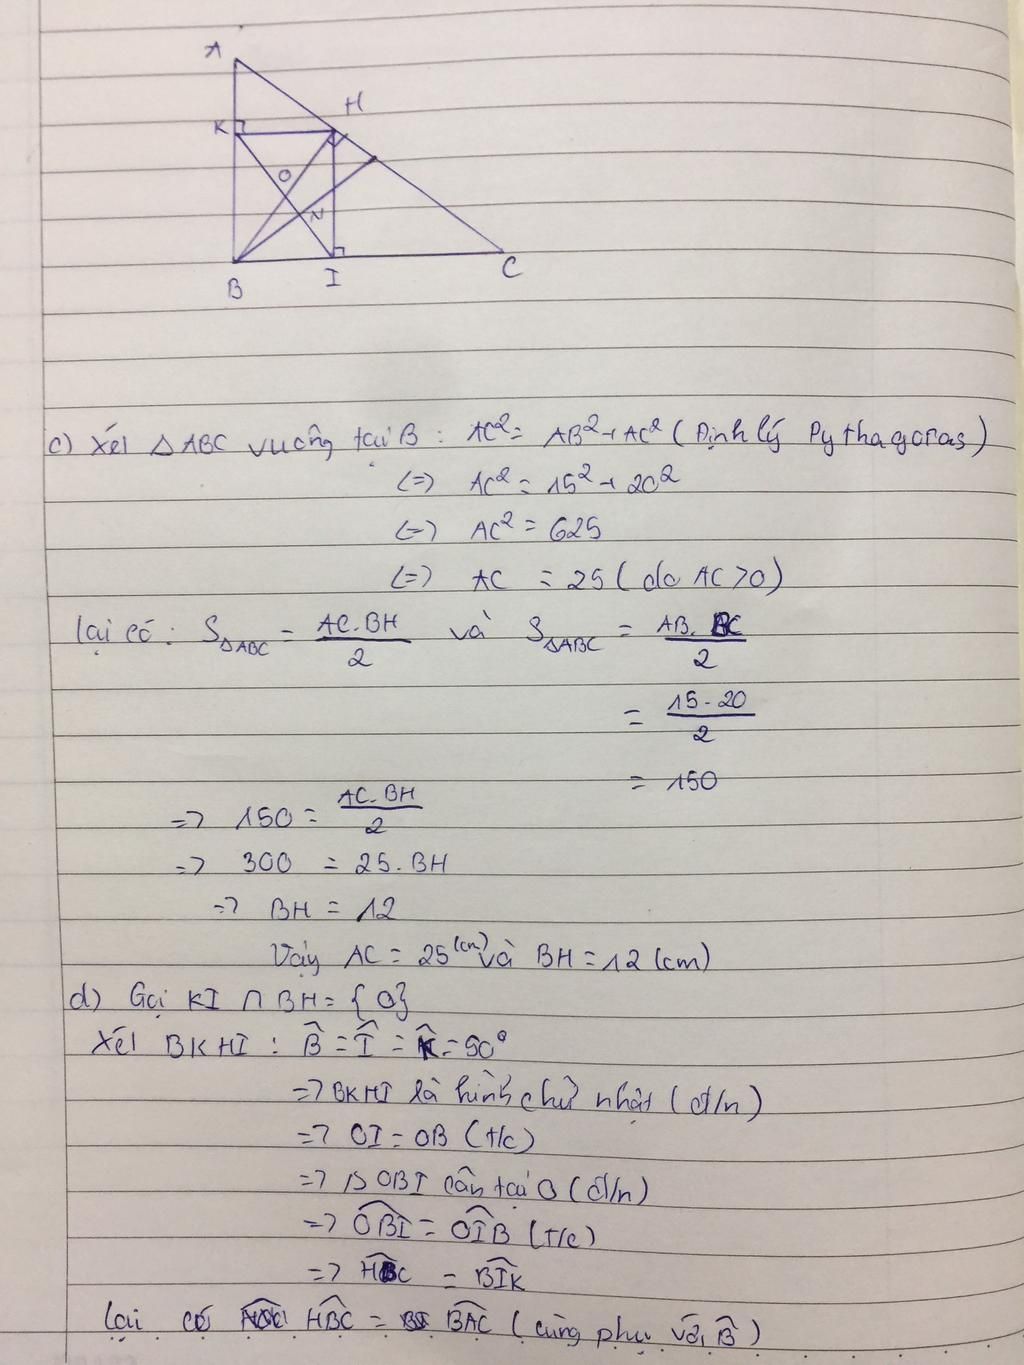 A
H
K
O
N
B
I
C
c) Xét △ABC vuông tại B : AC² = AB² + AC² (Định lý Pythagoras)
(=) AC² = 15² + 20²
(=) AC² = 625
(=) AC = 25 (do AC > 0)
lại có : S△ABC = AC.BH/2 và S△ABC = AB.BC/2
= 15.20/2
= 150
=> 150 = AC.BH/2
=> 300 = 25.BH
=> BH = 12
Vậy AC = 25 (cm) và BH = 12 (cm)
d) Gọi KI ∩ BH = {O}
Xét BKHI : B̂ = Î = K̂ = 90°
=> BKHI là hình chữ nhật (đ/n)
=> OI = OB (t/c)
=> △OBI cân tại O (đ/n)
=> OBI = OIB (t/c)
=> HBC = BIK
lại có HBC = BAC (cùng phụ với B̂)